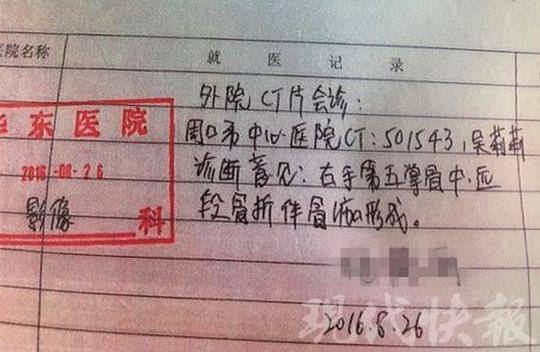 医院名称
就医记录
外院CT片会诊:
周口市中心医院CT:501543,吴莉莉
诊断意见:右手第五掌骨中.近
段骨折伴骨痂形成。
华东医院
2016-08-26
影像科
2016.8.26
现代快报